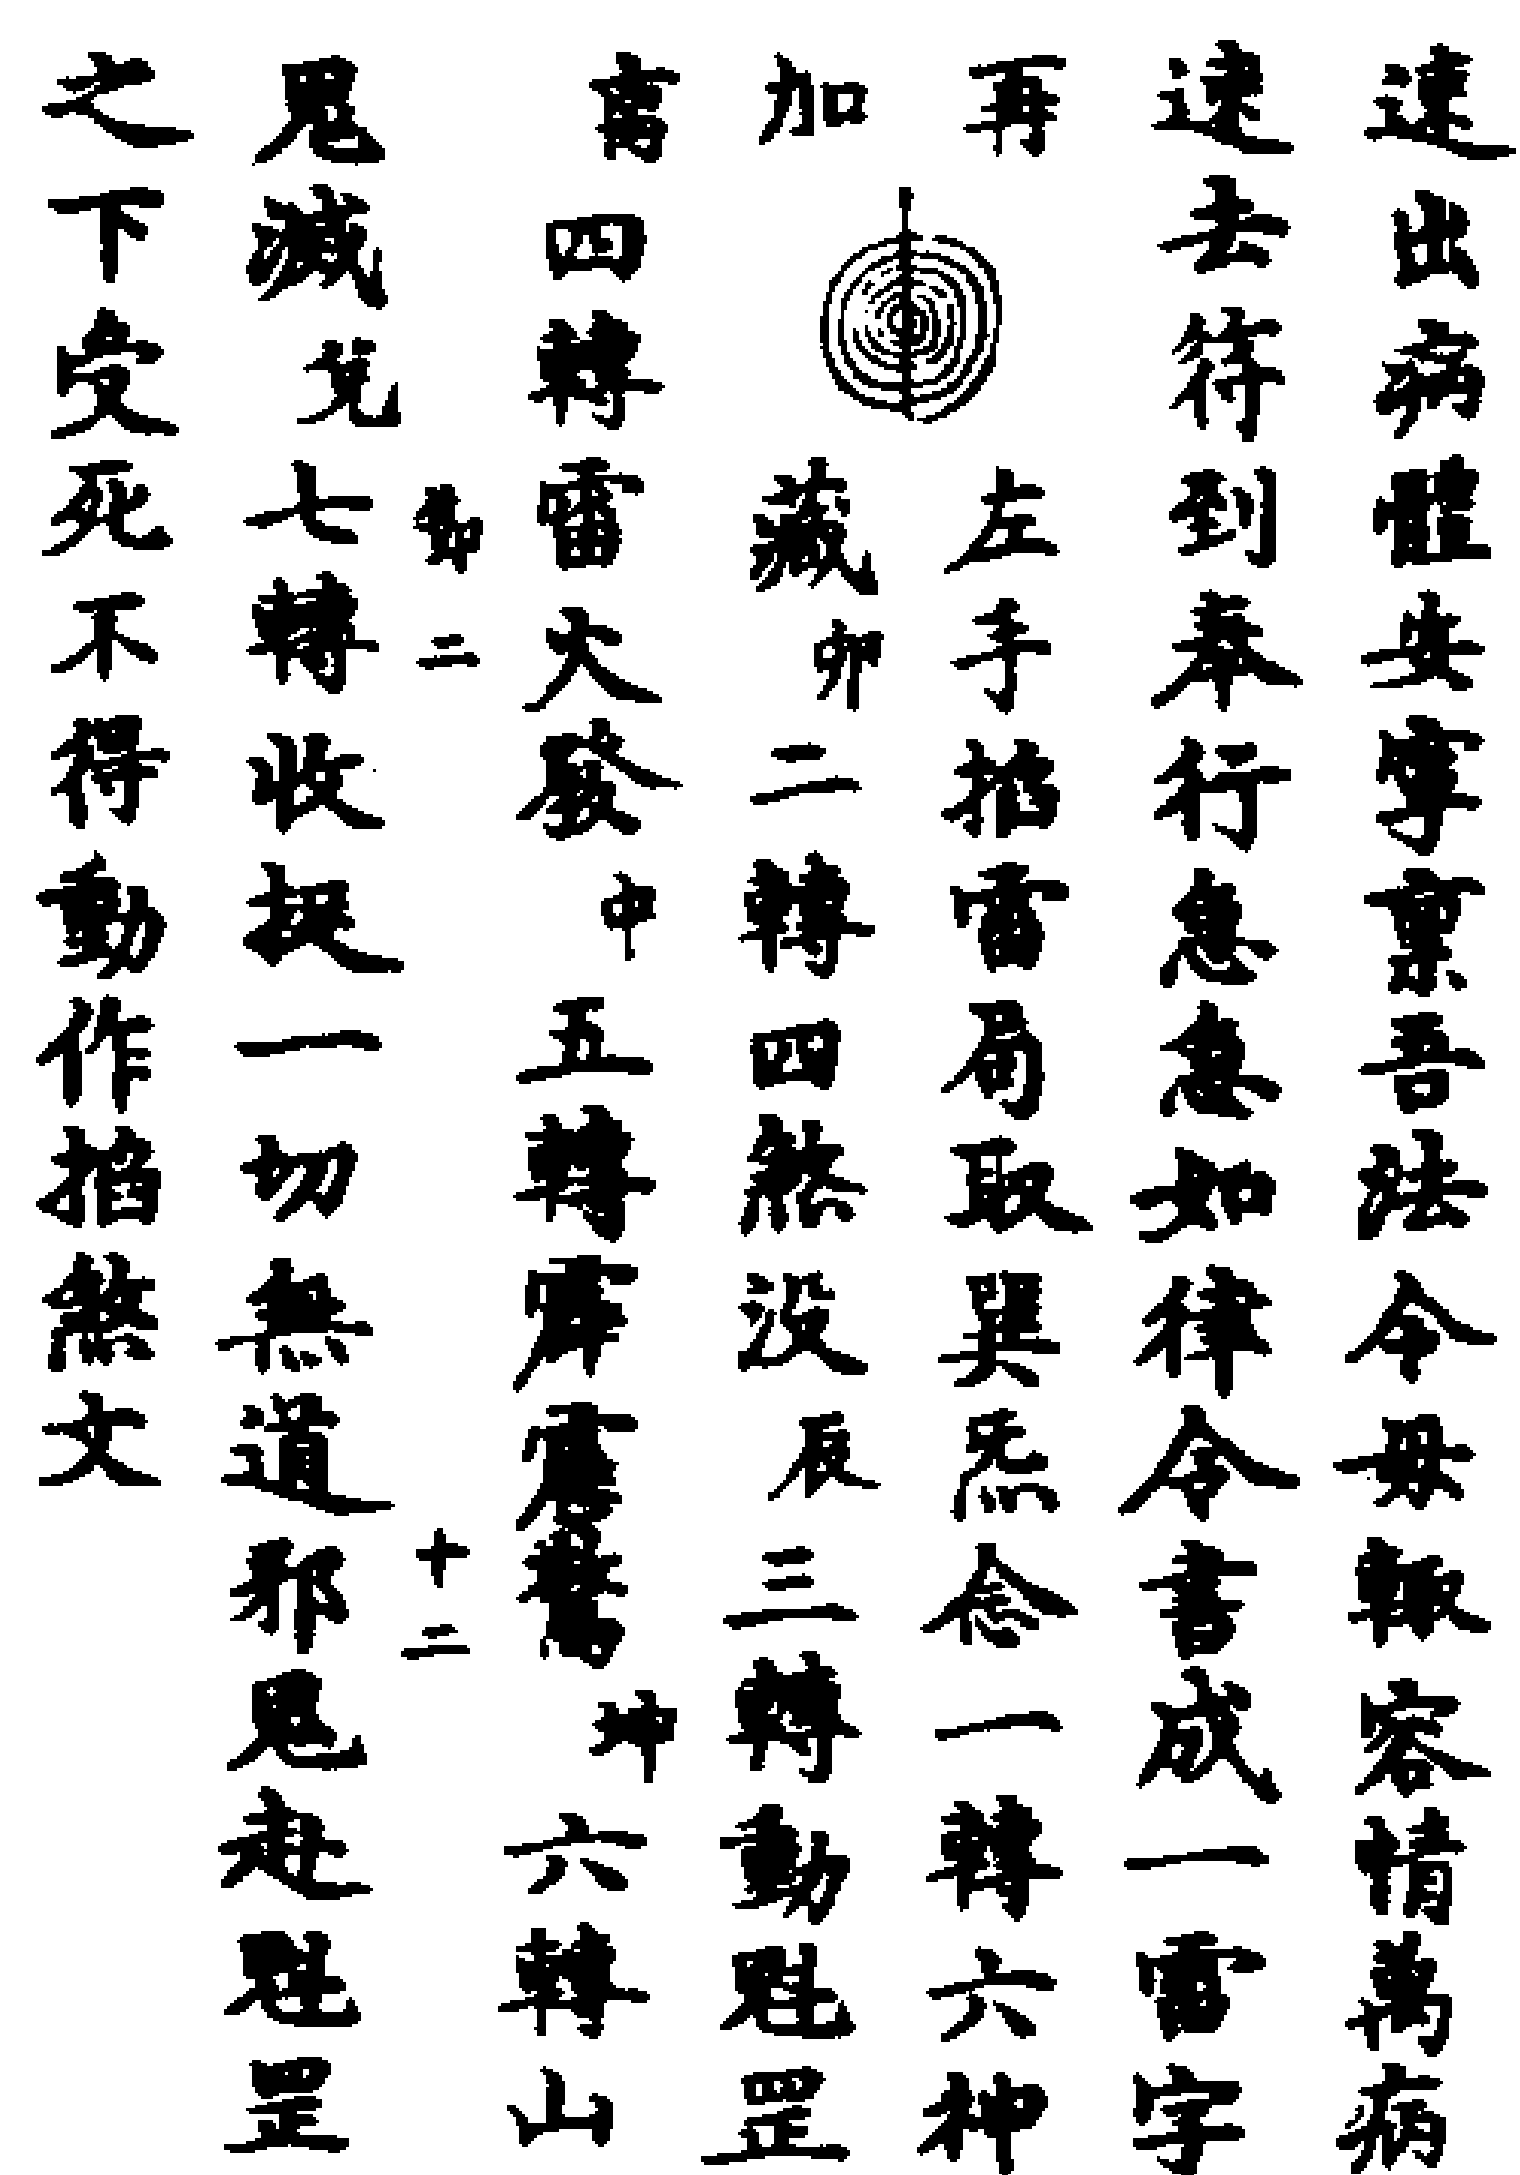 速出病體安寧稟吾法令毋輙容情萬病
速去符到奉行急急如律令書成一雷字
再左手掐雷局取巽炁念一轉六神
加藏卯二轉四煞没辰三轉動魁罡
离四轉雷火發中五轉霹震驚坤六轉山
二 十二
鬼滅兌七轉收捉一切無道邪鬼赴魁罡
之下受死不得動作掐煞文